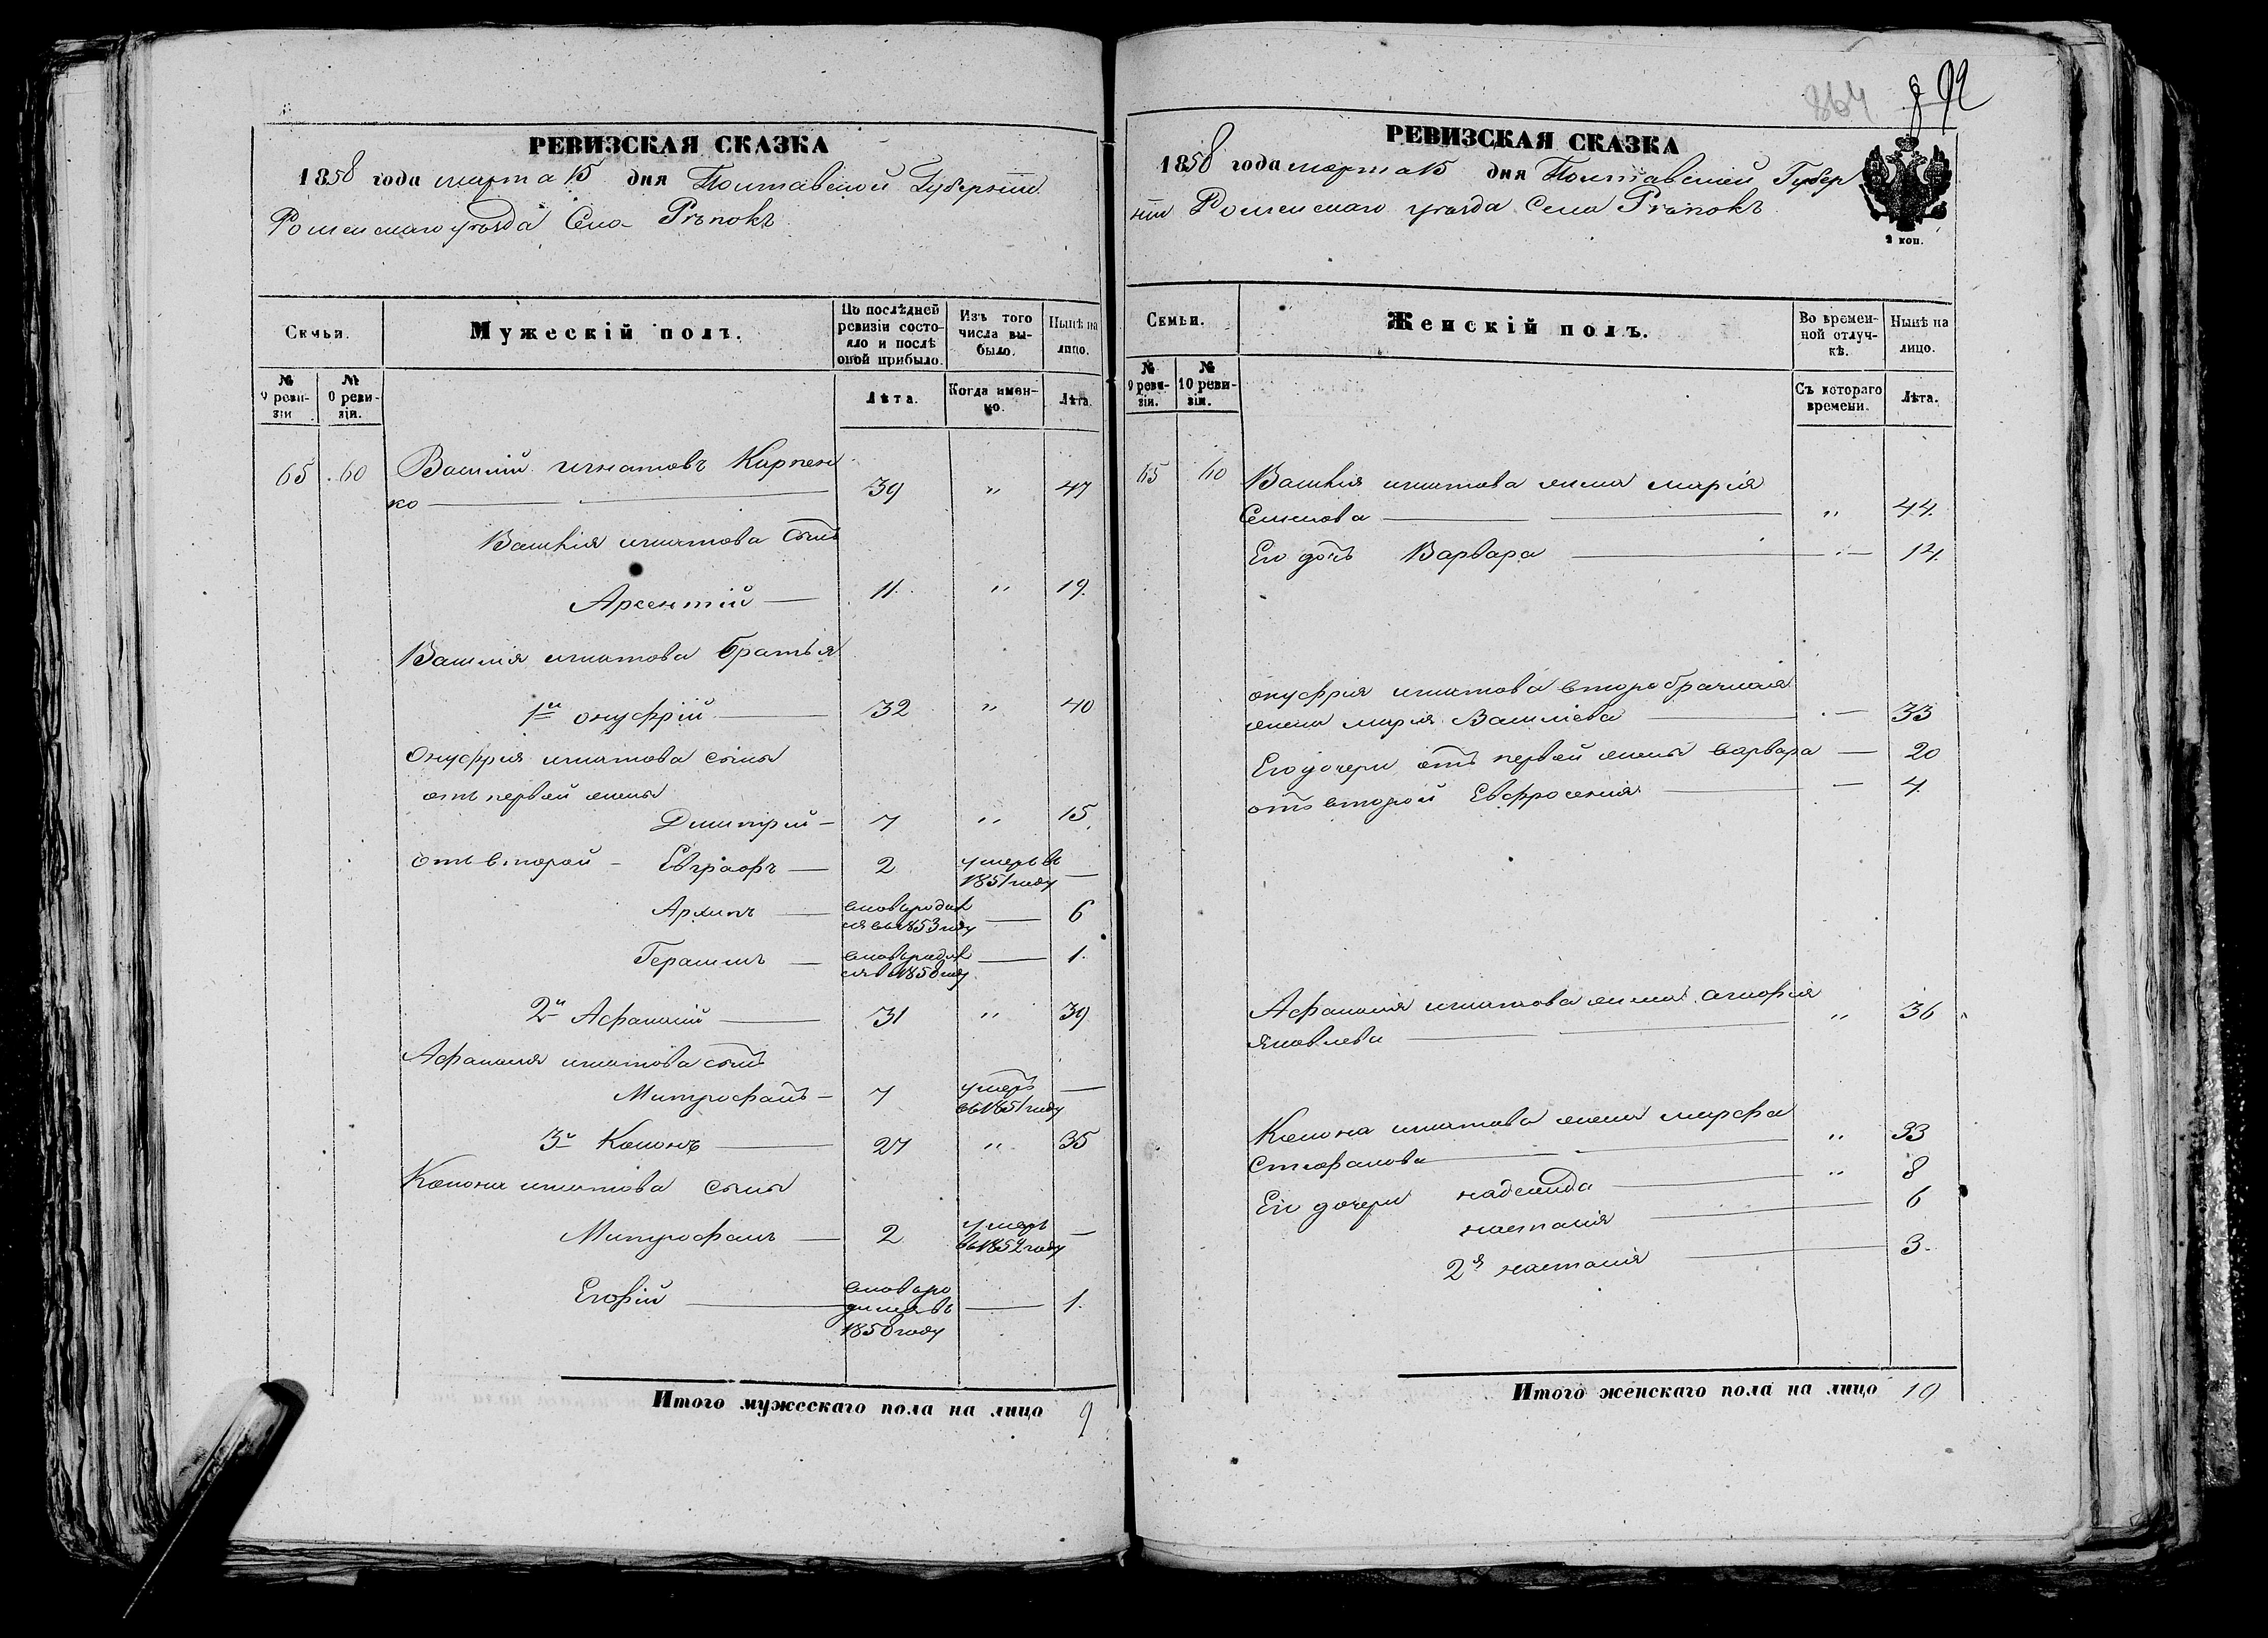 РЕВИЗСКАЯ СКАЗКА
1858 года марта 15 дня Полтавской Губерніи
Роменскаго уѣзда Села Рѣпокъ
Семьи.
Мужескій полъ.
По послѣдней ревизіи состояло и послѣ оной прибыло.
Изъ того числа выбыло.
Нынѣ на лицо.
№ 9 ревизіи
№ 10 ревизіи.
Лѣта.
Когда именно.
Лѣта.
65 60 Василій Игнатовъ Карпен
ко 39 " 47
Василія игнатова сынъ
Арсентій 11 " 19
Василія игнатова братья
1й онуфрій 32 " 40
Онуфрія игнатова сыны
отъ первой жены
Дмитрій 7 " 15
отъ второй Евграфъ 2 умеръ въ 1851 году —
Архипъ вновь родил ся въ 1853 году — 6
Герасимъ вновь родил ся въ 1858 году — 1
2й Афанасій 31 " 39
Афанасія игнатова сынъ
Митрофанъ 7 умеръ въ 1851 году —
3й Кононъ 27 " 35
Конона игнатова сыны
Митрофанъ 2 умеръ въ 1852 году —
Егорій вновь ро дился въ 1858 году — 1
Итого мужескаго пола на лицо 9
864 892
РЕВИЗСКАЯ СКАЗКА
1858 года марта 15 дня Полтавской Губер
ніи Роменскаго уѣзда Села Рѣпокъ
2 коп.
Семьи.
Женскій полъ.
Во временной отлучкѣ.
Нынѣ на лицо.
№ 9 ревизіи.
№ 10 ревизіи.
Съ котораго времени.
Лѣта.
65 60 Василія игнатова жена марія
Семенова " 44
Его дочь Варвара " 14
онуфрія игнатова второбрачная
жена марія Василіева — 33
Его дочери отъ первой жены варвара — 20
отъ второй Евфросенія — 4
Афанасія игнатова жена
Яковлева " 36
Конона игнатова жена марфа
Стефанова " 33
Его дочери надежида " 8
настасія 6
2я настасія 3
Итого женскаго пола на лицо 10